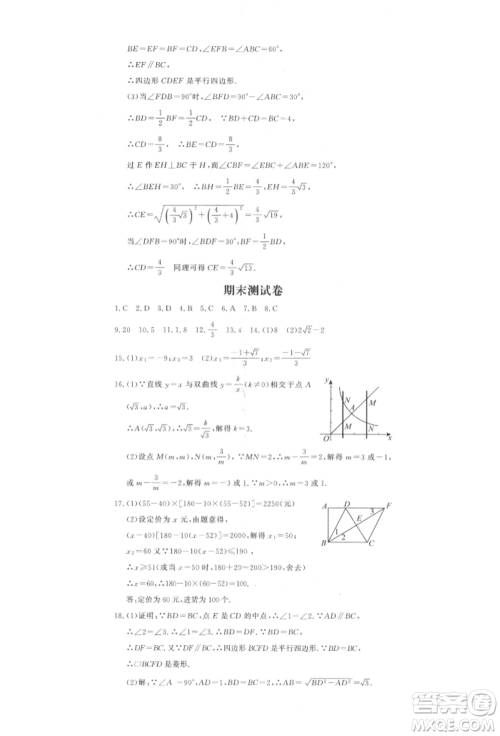 BE=EF=BF=BD,∠EFB=∠ABC=60°,
∴EF∥BC,
∴四边形 CDEF 是平行四边形.
(3)当∠FDB=90°时,∠BFD=90°-∠ABC=30°,
∴BD=1/2 BF=1/2 CD, ∵BD+BC=4,
∴CD=8/3, ∴BD=4/3, ∴BE=8/3.
过 E 作 EH⊥BC 于 H,而∠CBE=∠CBF+∠EBF=120°,
∴∠BEH=30°, ∴BH=4/3,EH=4/3√3,
∴CE=√((4/3√3)²+(4/3+4)²)=4/3√19,
当∠DFB=90°时,∠BDF=30°, ∴BF=1/2 BD
∴CD=4/3 同理可得 CE=4/3√13.
期末测试卷
1.C 2.D 3.D 4.B 5.A 6.C 7.B 8.C
9.20 10.5 11.1.8 12.4/3 13.4 14.(1)8 (2)2√2-2
15.(1)x₁=9;x₂=3 (2)x₁=(-1+√7)/3,x₂=(-1-√7)/3
16.(1)∵直线 y=x 与双曲线 y=k/x(k≠0)相交于点 A
(√3,m), ∴m=√3.
∴A(√3,√3), ∴√3=k/√3,解得 k=3.
(2)设点 M(m,m),N(m,3/m), ∵MN=2, ∴m-3/m=2,
或3/m-m=2, ∴m-3/m=2,解得 m=3 或 m=-1(舍去);
3/m-m=2,解得 m=1 或 m=-3(舍去)
y N M A N M O x
17.(1)(55-40)×[180-10(55-52)]=2250(元)
(2)设定价为 x 元,由题意得,
(x-40)[180-10(x-52)]=2000,
解得 x₁=50,x₂=60 ∵180-10(x-52)≤190,
∴x≥51(或当 x=50 时,180-10(x-52)=200,舍去)
∴x=60, ∴180-10(x-52)=100.
答:定价为 60 元,进货为 100 个.
A D F 3 E 1 2 B C
18.(1)证明:∵BD=BC,点 E 是 CD 的中点, ∴∠1=∠2
∴∠2=∠3, ∴∠1=∠3, ∴BD=DF. ∵BD=BC,
∴DF=BC. 又∵DF∥BC, ∴四边形 BCFD 是平行四边形,
∴▱BCFD 是菱形.
(2)解:∵∠A=90°,BD=BC=2, ∴AB=√(BD²-AD²)=√3.